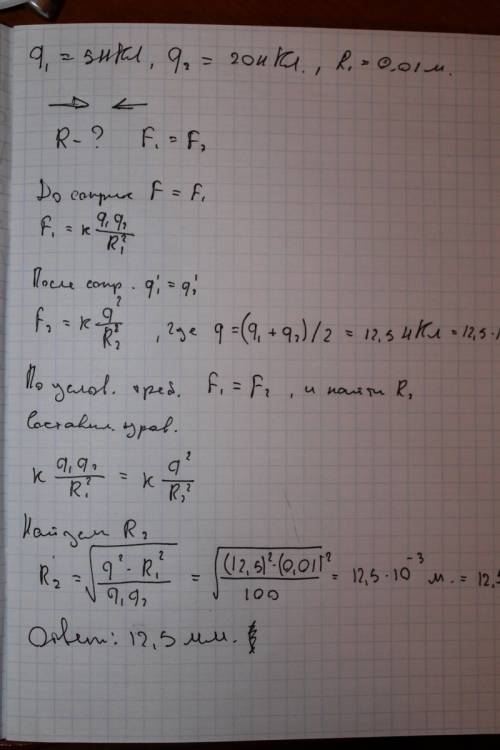 q₁ = 5нКл, q₂ = 20нКл., R₁ = 0,01 м.
R - ? F₁ = F₂
До соприк F = F₁
F₁ = к q₁q₂ / R₁²
После сопр. q₁' = q₂'
F₂ = к q² / R₂² , где q = (q₁ + q₂)/2 = 12,5 нКл = 12,5 · 1
По услов. треб. F₁ = F₂ , и найти R₂
Составим урав.
к q₁q₂ / R₁² = к q² / R₂²
Найдем R₂
R₂ = √(q² · R₁² / q₁q₂) = √((12,5)² · (0,01)² / 100) = 12,5 · 10⁻³ м. = 12,5
Ответ: 12,5 мм.